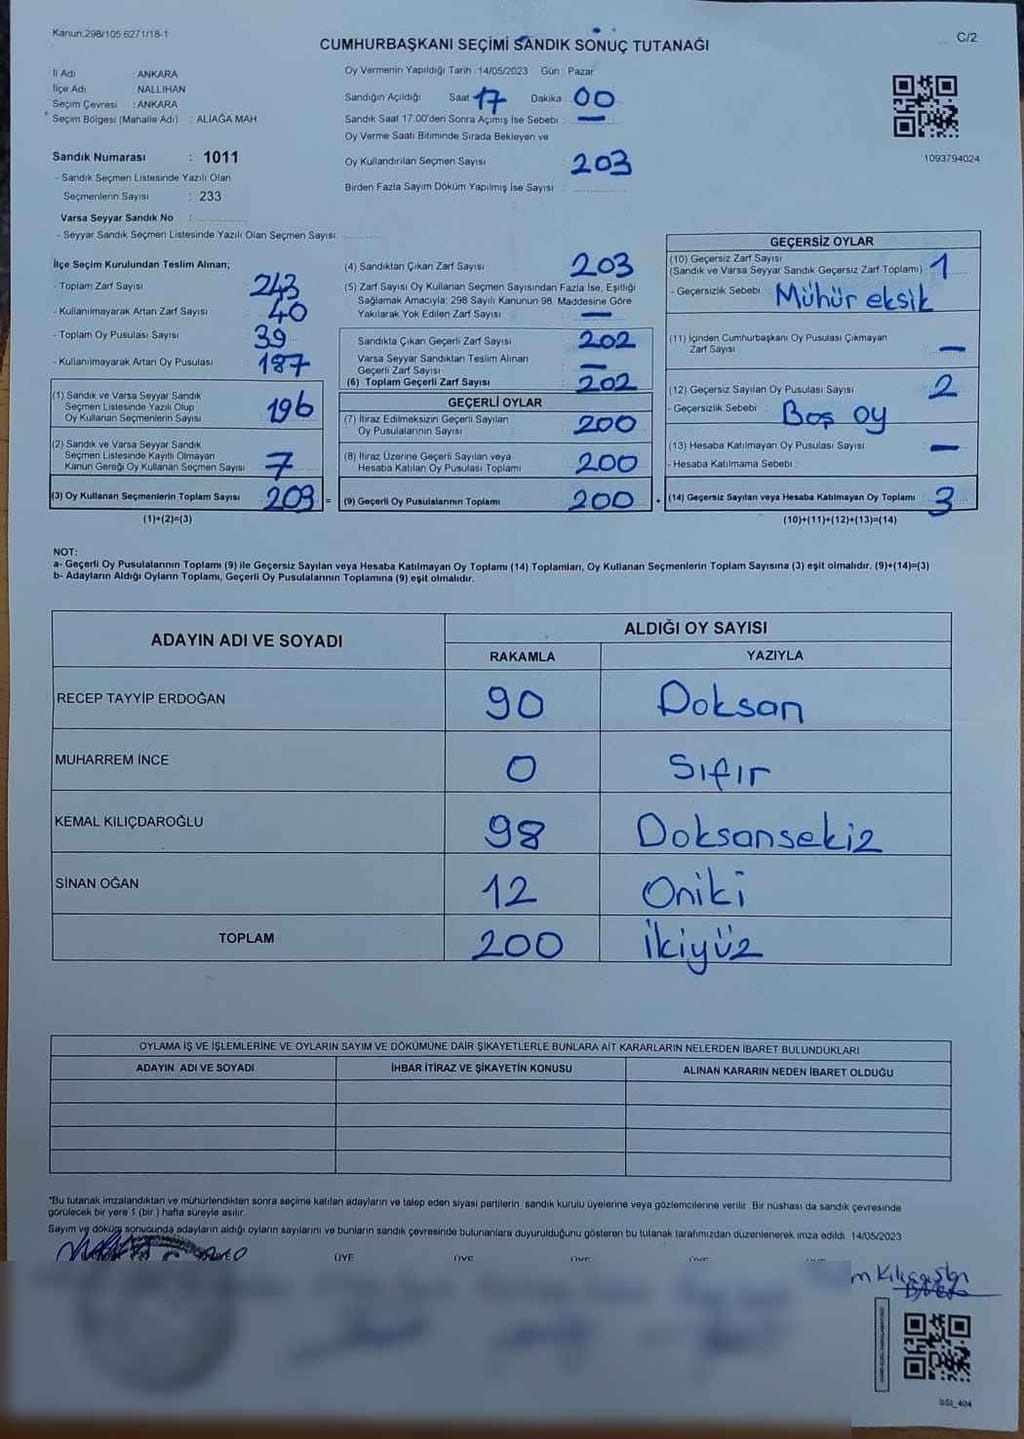 Kanun:298/105:6271/18-1
C/2
CUMHURBAŞKANI SEÇİMİ SANDIK SONUÇ TUTANAĞI
İl Adı : ANKARA
İlçe Adı : NALLIHAN
Seçim Çevresi : ANKARA
Seçim Bölgesi (Mahalle Adı) : ALİAĞA MAH
Sandık Numarası : 1011
- Sandık Seçmen Listesinde Yazılı Olan
Seçmenlerin Sayısı : 233
Varsa Seyyar Sandık No :
- Seyyar Sandık Seçmen Listesinde Yazılı Olan Seçmen Sayısı:
Oy Vermenin Yapıldığı Tarih : 14/05/2023 Gün : Pazar
Sandığın Açıldığı Saat 17 Dakika 00
Sandık Saat 17:00'den Sonra Açımış İse Sebebi : —
Oy Verme Saati Bitiminde Sırada Bekleyen ve
Oy Kullandırılan Seçmen Sayısı : 203
Birden Fazla Sayım Döküm Yapılmış İse Sayısı :
1093794024
İlçe Seçim Kurulundan Teslim Alınan;
- Toplam Zarf Sayısı : 243
- Kullanılmayarak Artan Zarf Sayısı : 40
- Toplam Oy Pusulası Sayısı : 39
- Kullanılmayarak Artan Oy Pusulası : 187
(1) Sandık ve Varsa Seyyar Sandık
Seçmen Listesinde Yazılı Olup
Oy Kullanan Seçmenlerin Sayısı : 196
(2) Sandık ve Varsa Seyyar Sandık
Seçmen Listesinde Kayıtlı Olmayan
Kanun Gereği Oy Kullanan Seçmen Sayısı : 7
(3) Oy Kullanan Seçmenlerin Toplam Sayısı : 203 =
(1)+(2)=(3)
(4) Sandıktan Çıkan Zarf Sayısı : 203
(5) Zarf Sayısı Oy Kullanan Seçmen Sayısından Fazla İse, Eşitliği
Sağlamak Amacıyla; 298 Sayılı Kanunun 98. Maddesine Göre
Yakılarak Yok Edilen Zarf Sayısı : —
Sandıkta Çıkan Geçerli Zarf Sayısı : 202
Varsa Seyyar Sandıktan Teslim Alınan
Geçerli Zarf Sayısı : —
(6) Toplam Geçerli Zarf Sayısı : 202
GEÇERLİ OYLAR
(7) İtiraz Edilmeksizin Geçerli Sayılan
Oy Pusulalarının Sayısı : 200
(8) İtiraz Üzerine Geçerli Sayılan veya
Hesaba Katılan Oy Pusulası Toplamı : 200
(9) Geçerli Oy Pusulalarının Toplamı : 200 +
GEÇERSİZ OYLAR
(10) Geçersiz Zarf Sayısı
(Sandık ve Varsa Seyyar Sandık Geçersiz Zarf Toplamı) : 1
- Geçersizlik Sebebi : Mühür eksik
(11) İçinden Cumhurbaşkanı Oy Pusulası Çıkmayan
Zarf Sayısı : —
(12) Geçersiz Sayılan Oy Pusulası Sayısı : 2
- Geçersizlik Sebebi : Boş oy
(13) Hesaba Katılmayan Oy Pusulası Sayısı : —
- Hesaba Katılmama Sebebi :
(14) Geçersiz Sayılan veya Hesaba Katılmayan Oy Toplamı : 3
(10)+(11)+(12)+(13)=(14)
NOT:
a- Geçerli Oy Pusulalarının Toplamı (9) ile Geçersiz Sayılan veya Hesaba Katılmayan Oy Toplamı (14) Toplamları, Oy Kullanan Seçmenlerin Toplam Sayısına (3) eşit olmalıdır. (9)+(14)=(3)
b- Adayların Aldığı Oyların Toplamı, Geçerli Oy Pusulalarının Toplamına (9) eşit olmalıdır.
ADAYIN ADI VE SOYADI ALDIĞI OY SAYISI
RAKAMLA YAZIYLA
RECEP TAYYİP ERDOĞAN 90 Doksan
MUHARREM İNCE 0 Sıfır
KEMAL KILIÇDAROĞLU 98 Doksansekiz
SİNAN OĞAN 12 Oniki
TOPLAM 200 İkiyüz
OYLAMA İŞ VE İŞLEMLERİNE VE OYLARIN SAYIM VE DÖKÜMÜNE DAİR ŞİKAYETLERLE BUNLARA AİT KARARLARIN NELERDEN İBARET BULUNDUKLARI
ADAYIN ADI VE SOYADI İHBAR İTİRAZ VE ŞİKAYETİN KONUSU ALINAN KARARIN NEDEN İBARET OLDUĞU
*Bu tutanak imzalandıktan ve mühürlendikten sonra seçime katılan adayların ve talep eden siyasi partilerin sandık kurulu üyelerine veya gözlemcilerine verilir. Bir nüshası da sandık çevresinde
görülecek bir yere 1 (bir) hafta süreyle asılır.
Sayım ve döküm sonucunda adayların aldığı oyların sayılarını ve bunların sandık çevresinde bulunanlara duyurulduğunu gösteren bu tutanak tarafımızdan düzenlenerek imza edildi. 14/05/2023
ÜYE ÜYE